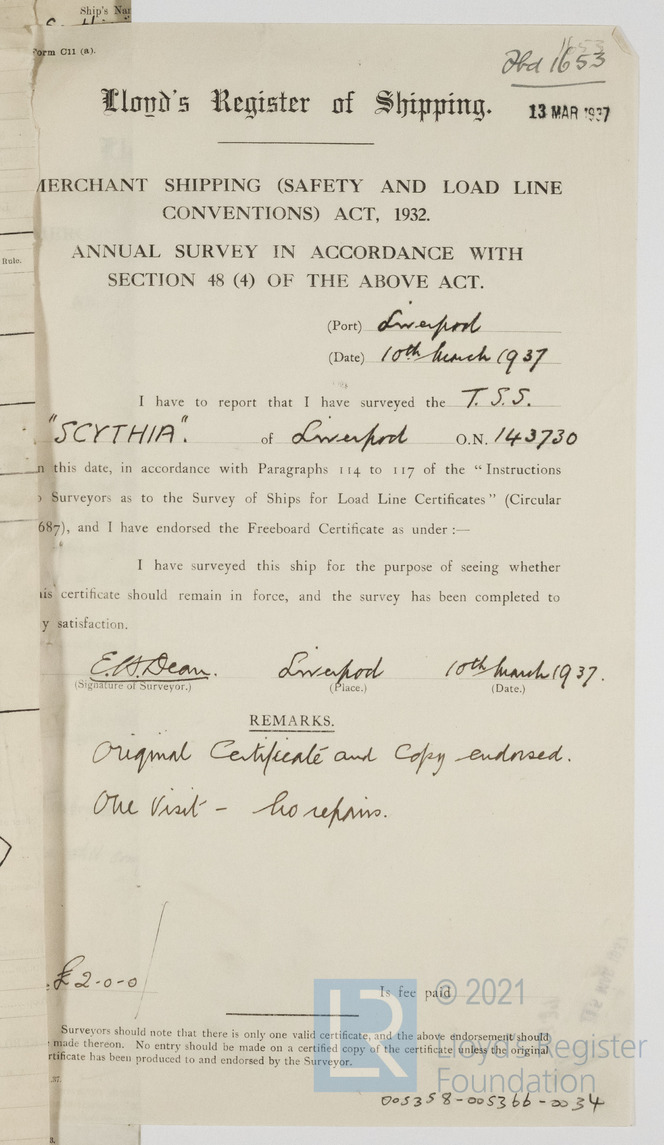 Ship's Nam
Form C11 (a).
Fbd 1653
Lloyd's Register of Shipping.
13 MAR 1937
MERCHANT SHIPPING (SAFETY AND LOAD LINE
CONVENTIONS) ACT, 1932.
Rule.
ANNUAL SURVEY IN ACCORDANCE WITH
SECTION 48 (4) OF THE ABOVE ACT.
(Port) Liverpool
(Date) 10th March 1937
I have to report that I have surveyed the T.S.S.
"SCYTHIA". of Liverpool O.N. 143730
n this date, in accordance with Paragraphs 114 to 117 of the "Instructions
o Surveyors as to the Survey of Ships for Load Line Certificates" (Circular
687), and I have endorsed the Freeboard Certificate as under :—
I have surveyed this ship for the purpose of seeing whether
his certificate should remain in force, and the survey has been completed to
y satisfaction.
E.H. Dean. Liverpool 10th March 1937.
(Signature of Surveyor.) (Place.) (Date.)
REMARKS.
Original Certificate and Copy endorsed.
One Visit – No repairs.
£2-0-0
Is fee paid
Surveyors should note that there is only one valid certificate, and the above endorsement should
made thereon. No entry should be made on a certified copy of the certificate unless the original
rtificate has been produced to and endorsed by the Surveyor.
.37.
© 2021
Lloyd's Register
Foundation
LR
005358-005366-0034